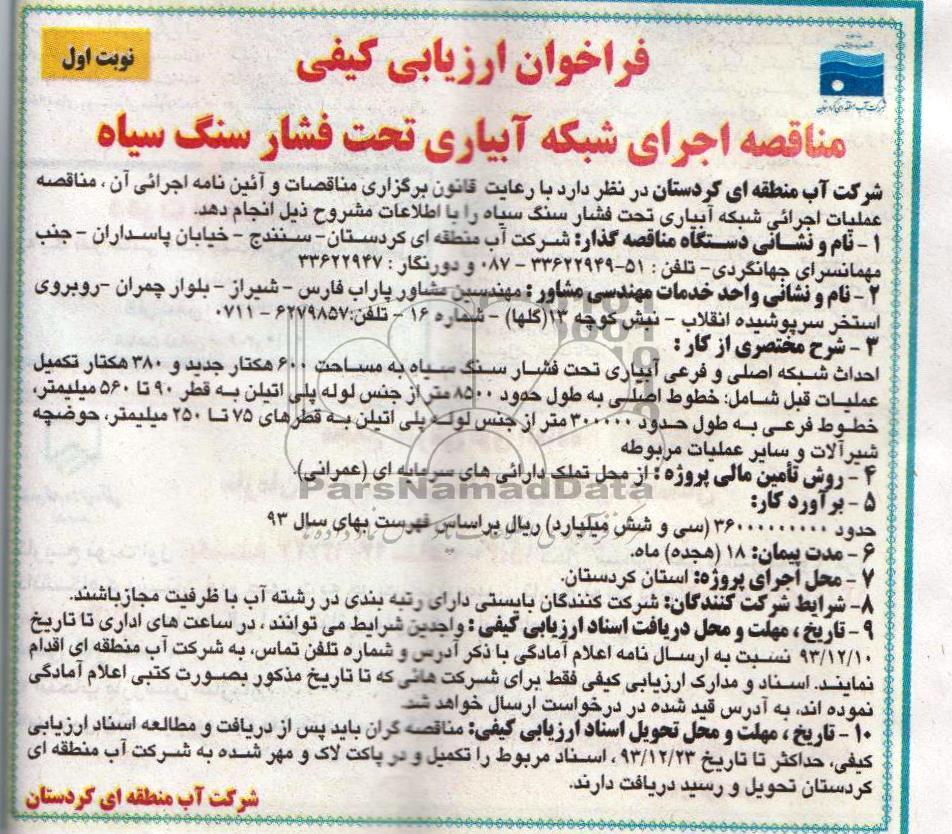 نوبت اول
شرکت آب منطقه ای کردستان
فراخوان ارزیابی کیفی
مناقصه اجرای شبکه آبیاری تحت فشار سنگ سیاه
شرکت آب منطقه ای کردستان در نظر دارد با رعایت قانون برگزاری مناقصات و آئین نامه اجرائی آن ، مناقصه
عملیات اجرائی شبکه آبیاری تحت فشار سنگ سیاه را با اطلاعات مشروح ذیل انجام دهد.
۱ - نام و نشانی دستگاه مناقصه گذار: شرکت آب منطقه ای کردستان- سنندج - خیابان پاسداران - جنب
مهمانسرای جهانگردی- تلفن : ۵۱-۳۳۶۲۲۹۴۹ - ۰۸۷ و دورنگار : ۳۳۶۲۲۹۴۷
۲ - نام و نشانی واحد خدمات مهندسی مشاور : مهندسین مشاور پاراب فارس - شیراز - بلوار چمران -روبروی
استخر سرپوشیده انقلاب - نبش کوچه ۱۳(گلها) - شماره ۱۶ - تلفن:۶۲۷۹۸۵۷ - ۰۷۱۱
۳ - شرح مختصری از کار :
احداث شبکه اصلی و فرعی آبیاری تحت فشار سنگ سیاه به مساحت ۶۰۰ هکتار جدید و ۳۸۰ هکتار تکمیل
عملیات قبل شامل: خطوط اصلی به طول حدود ۸۵۰۰ متر از جنس لوله پلی اتیلن به قطر ۹۰ تا ۵۶۰ میلیمتر،
خطوط فرعی به طول حدود ۳۰۰۰۰۰ متر از جنس لوله پلی اتیلن به قطرهای ۷۵ تا ۲۵۰ میلیمتر، حوضچه
شیرآلات و سایر عملیات مربوطه
۴ - روش تأمین مالی پروژه : از محل تملک دارائی های سرمایه ای (عمرانی).
ParsNamadData
۵ - برآورد کار:
حدود ۳۶۰۰۰۰۰۰۰۰۰ (سی و شش میلیارد) ریال براساس فهرست بهای سال ۹۳
۶ - مدت پیمان: ۱۸ (هجده) ماه.
۷ - محل اجرای پروژه: استان کردستان.
۸- شرایط شرکت کنندگان: شرکت کنندگان بایستی دارای رتبه بندی در رشته آب با ظرفیت مجازباشند.
۹ - تاریخ ، مهلت و محل دریافت اسناد ارزیابی کیفی : واجدین شرایط می توانند ، در ساعت های اداری تا تاریخ
۹۳/۱۲/۱۰ نسبت به ارسال نامه اعلام آمادگی با ذکر آدرس و شماره تلفن تماس، به شرکت آب منطقه ای اقدام
نمایند. اسناد و مدارک ارزیابی کیفی فقط برای شرکت هائی که تا تاریخ مذکور بصورت کتبی اعلام آمادگی
نموده اند، به آدرس قید شده در درخواست ارسال خواهد شد.
۱۰- تاریخ ، مهلت و محل تحویل اسناد ارزیابی کیفی: مناقصه گران باید پس از دریافت و مطالعه اسناد ارزیابی
کیفی، حداکثر تا تاریخ ۹۳/۱۲/۲۳ ، اسناد مربوط را تکمیل و در پاکت لاک و مهر شده به شرکت آب منطقه ای
کردستان تحویل و رسید دریافت دارند.
شرکت آب منطقه ای کردستان